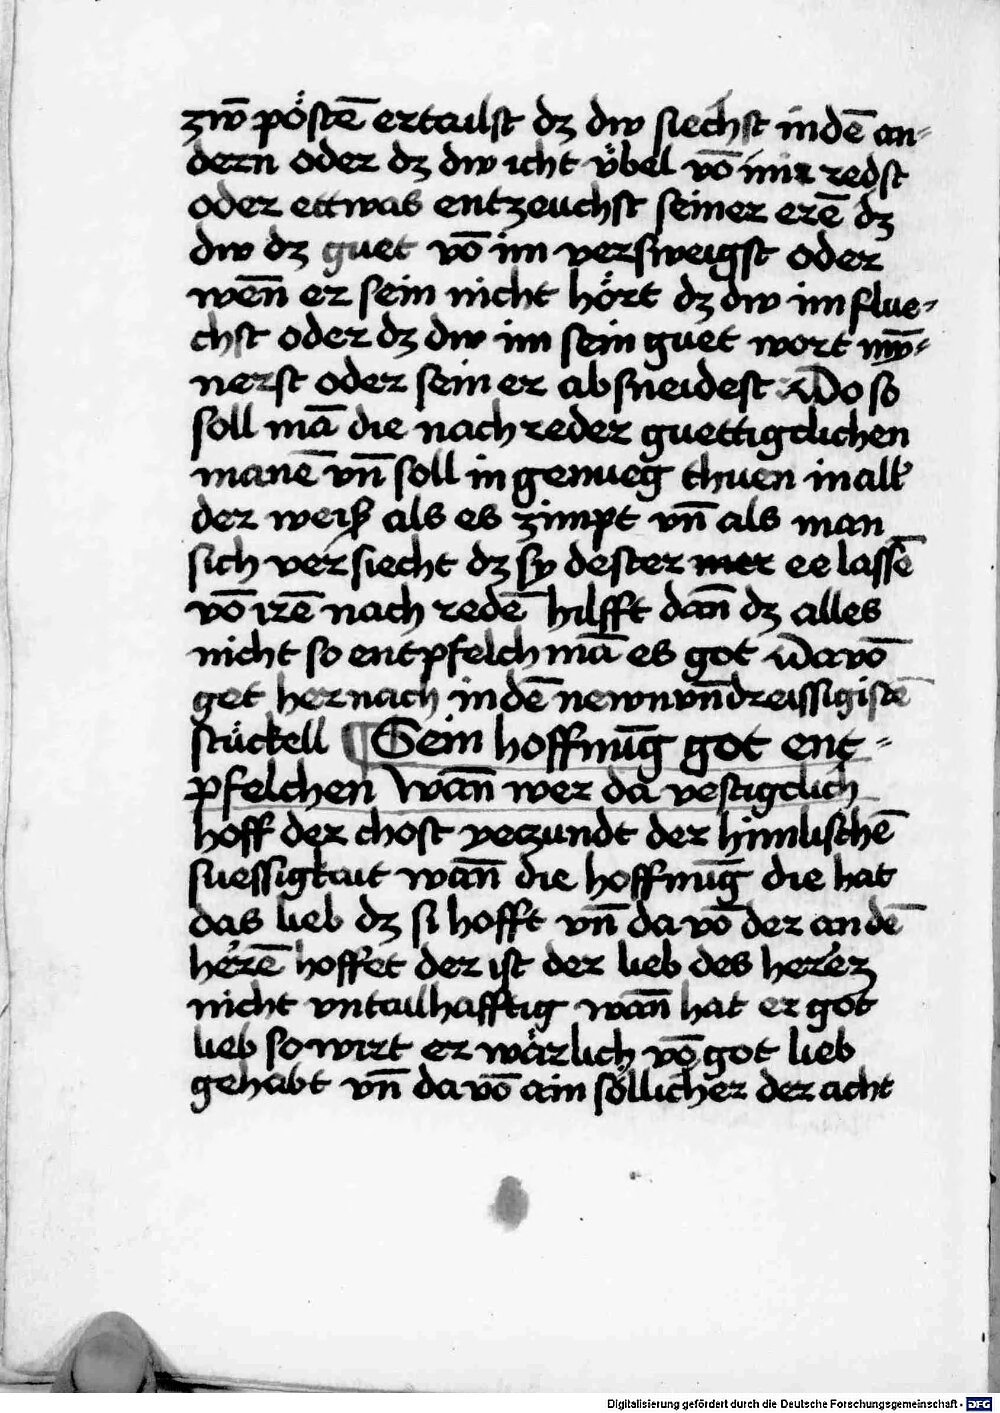 zw̄ pöstē ertailst dz dw siechst in dē an-
dern oder dz dw icht v̈bel vō im redst
oder ettwas entzeuchst seiner erē dz
dw dz guet vō im verſweigst oder
wen̄ er sein nicht hört dz dw im flue-
chst oder dz dw im sein guet wort
nerst oder sein er abſneidest Do so
soll mā die nachreder guettigclichen
manē vn̄ soll in genueg thuen in all'
der weiß als es zimpt vn̄ als man
sich versiecht dz sy dester ee lassē
vō irē nach redē hilfft dan̄ dz alles
nicht so entpfelch mā es got Davō
get hernach in dē newnvn̄dreissigistē
stückell Sein hoffnūg got ent-
pfelchen Wan̄ wer da vestigclich
hoff der chost yeczundt der himlischē
suessigkait wan̄ die hoffnūg die hat
das lieb dz si hofft vn̄ da vō der an dē
herrē hoffet der ist der lieb des herrē
nicht vntailhafftig wan̄ hat er got
lieb so wirt er wärlich vō got lieb
gehabt vn̄ da vō ain söllicher der acht
Digitalisierung gefördert durch die Deutsche Forschungsgemeinschaft - DFG